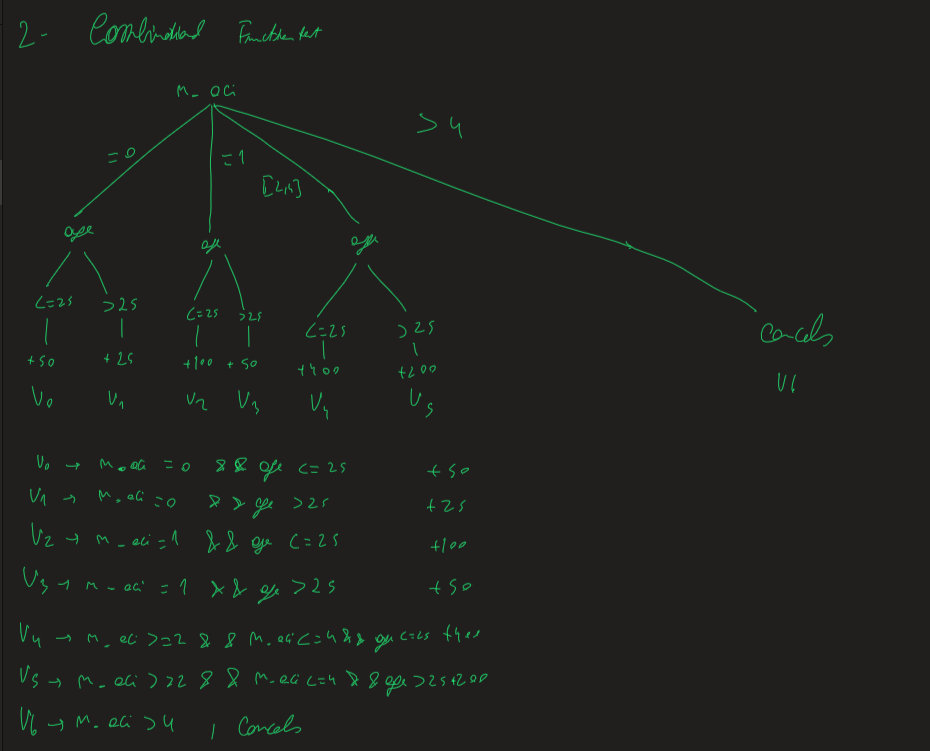 2- Combinational Function test
n_aci
=0 =1 [2,4] >4
age age age
<=25 >25 <=25 >25 <=25 >25 Cancels
+50 +25 +100 +50 +400 +200
V0 V1 V2 V3 V4 V5 V6
V0 → n_aci = 0 && age <= 25 +50
V1 → n_aci = 0 && age > 25 +25
V2 → n_aci = 1 && age <= 25 +100
V3 → n_aci = 1 && age > 25 +50
V4 → n_aci >= 2 && n_aci <= 4 && age <= 25 +400
V5 → n_aci >= 2 && n_aci <= 4 && age > 25 +200
V6 → n_aci > 4 , Cancels